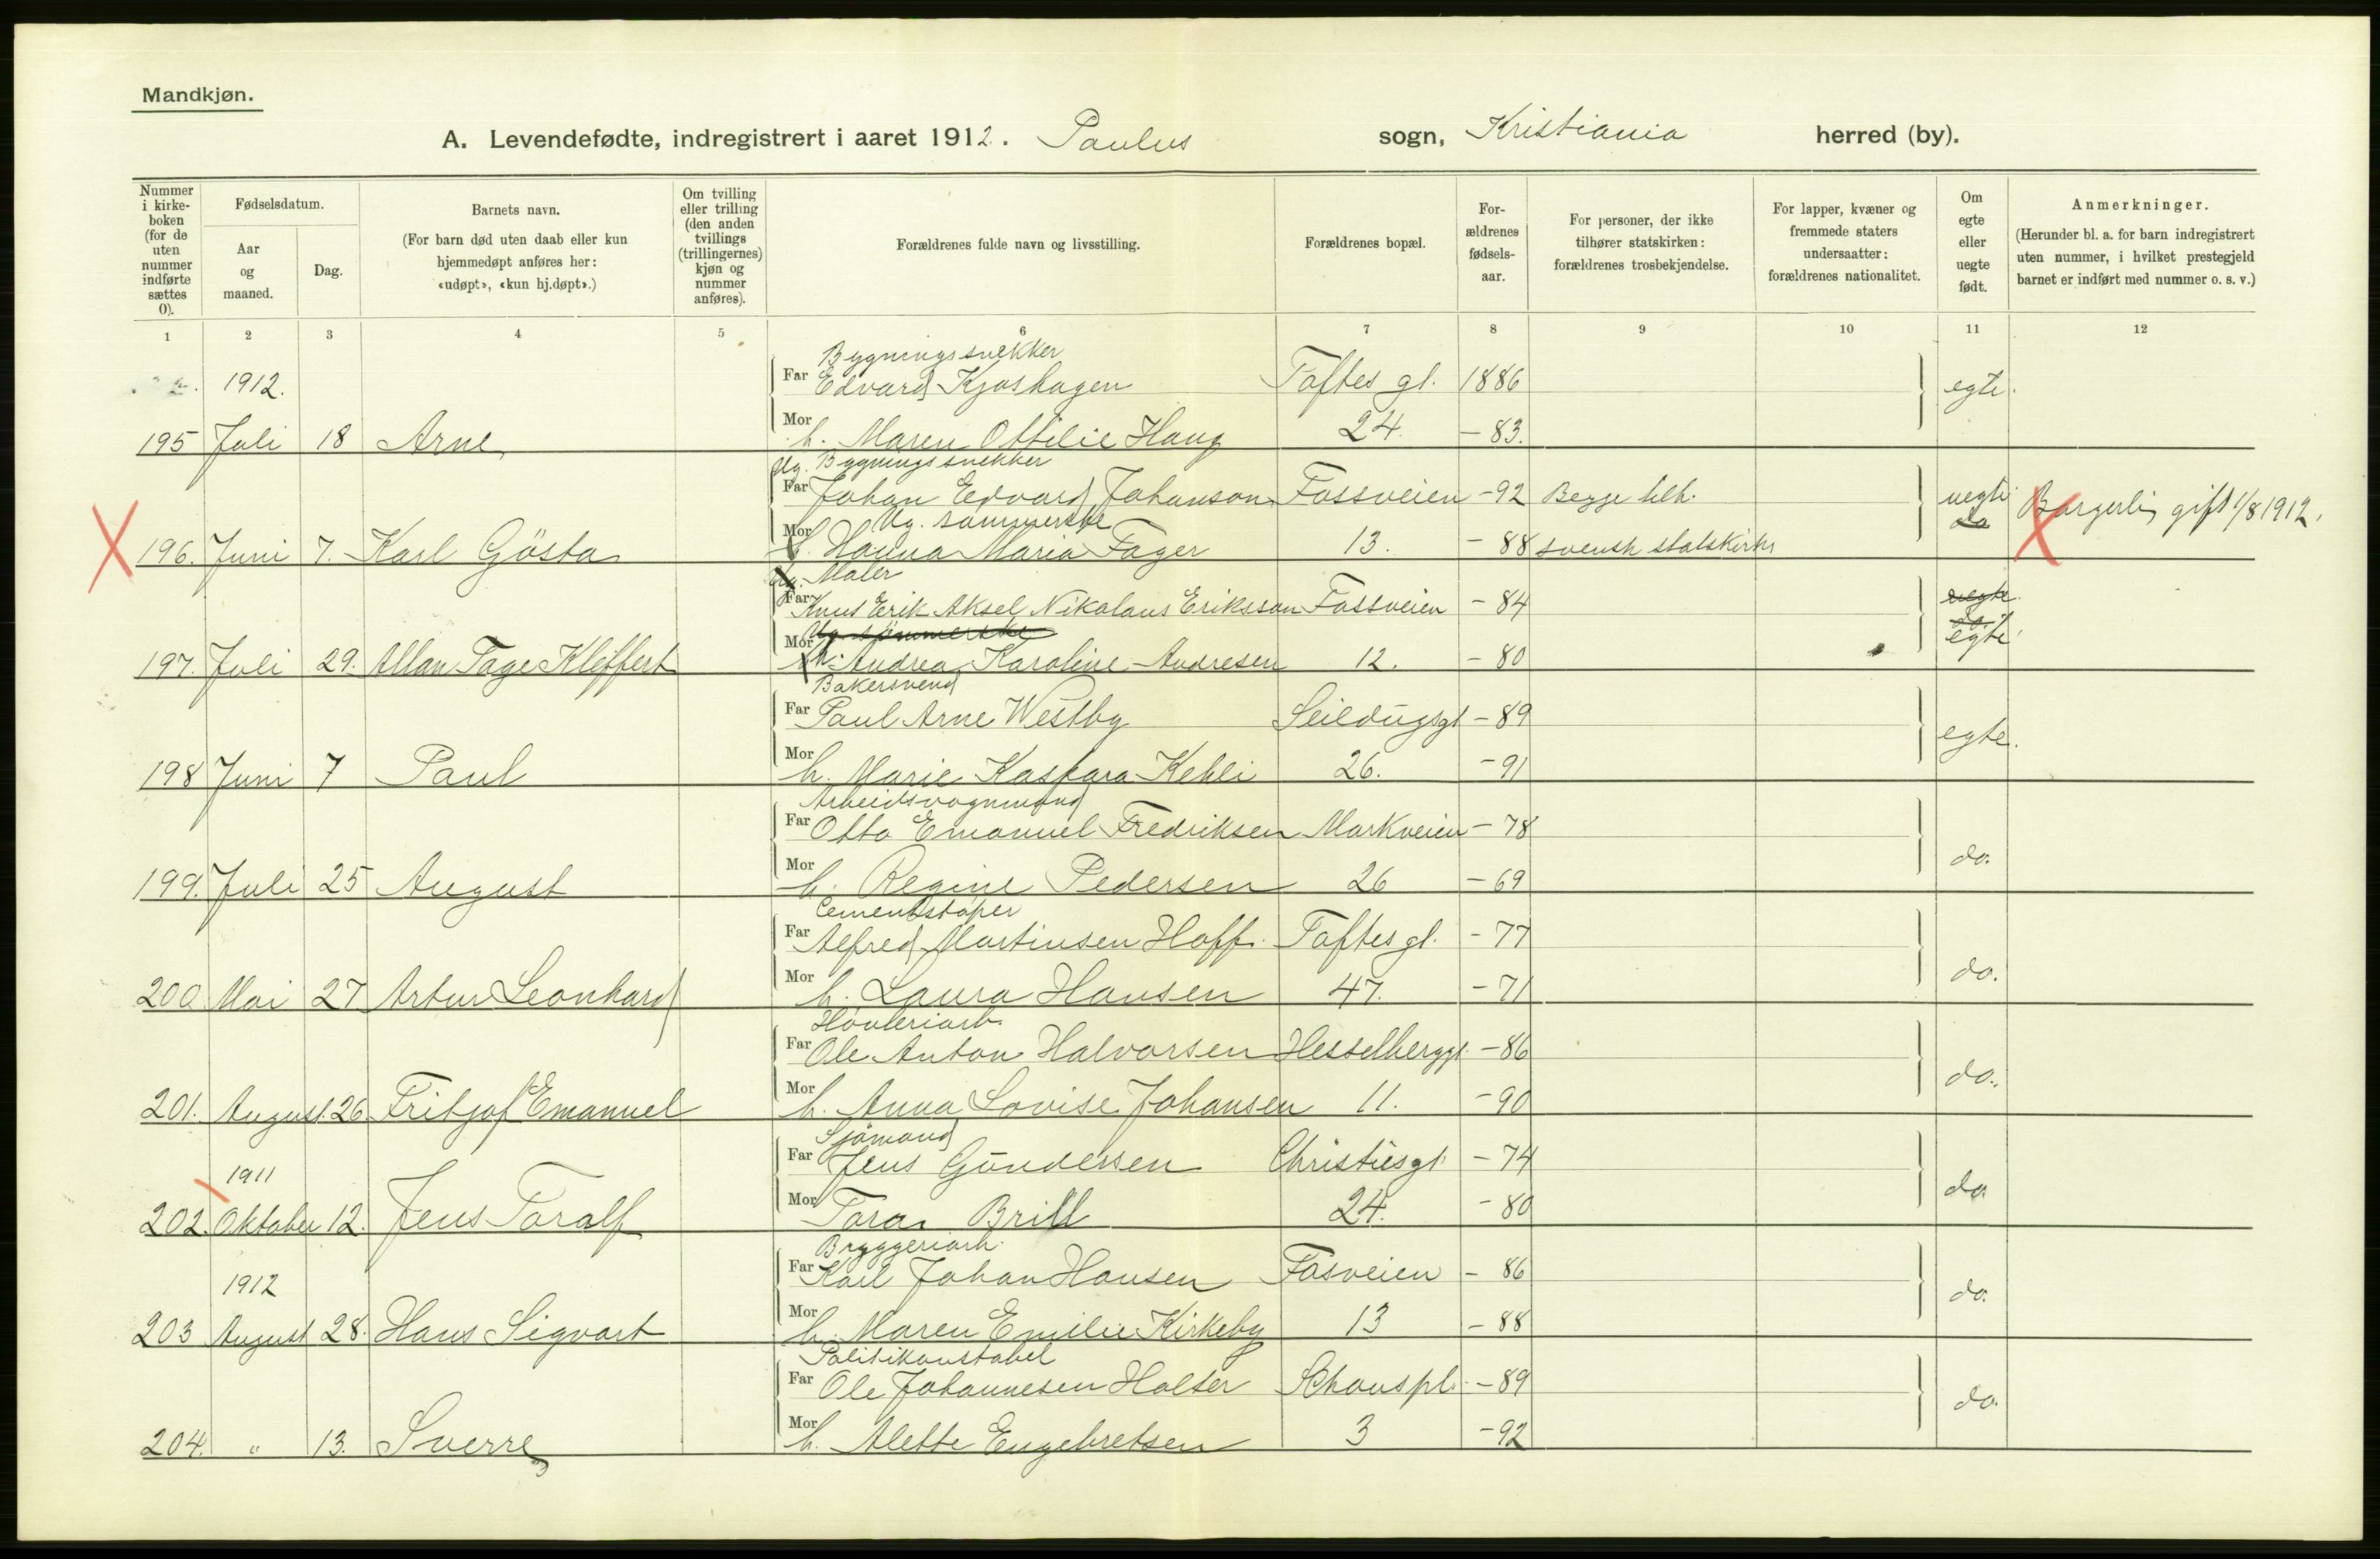 Mandkjøn.
A. Levendefødte, indregistrert i aaret 1912. Paulus sogn, Kristiania herred (by).
Nummer i kirke-boken (for de uten nummer indførte sættes 0).
Fødselsdatum.
Aar og maaned.
Dag.
Barnets navn.
(For barn død uten daab eller kun hjemmedøpt anføres her: «udøpt», «kun hj.døpt».)
Om tvilling eller trilling (den anden tvillings (trillingernes) kjøn og nummer anføres).
Forældrenes fulde navn og livsstilling.
Forældrenes bopæl.
For-ældrenes fødsels-aar.
For personer, der ikke tilhører statskirken: forældrenes trosbekjendelse.
For lapper, kvæner og fremmede staters undersaatter: forældrenes nationalitet.
Om egte eller uegte født.
Anmerkninger.
(Herunder bl. a. for barn indregistrert uten nummer, i hvilket prestegjeld barnet er indført med nummer o. s. v.)
1 2 3 4 5 6 7 8 9 10 11 12
Bygningssnekker
1912. Far Edvard Kjoshagen Toftes gt. 1886 egte.
195 Juli 18 Arne Mor h. Maren Ottilie Haug 24. - 83.
Ug. Bygningssnekker
Far Johan Edvard Johanson Fossveien - 92 Begge hlh. uegte. Borgerlig gift 1/8 1912.
Ug. sømmerske do
196. Juni 7. Karl Gösta Mor Hanna Maria Fager 13. - 88 svensk statskirke
Ug. Maler
Far Knut Erik Aksel Nikolaus Eriksson Fossveien - 84 uegte.
Ug. sømmerske
197. Juli 29. Allan Tage Kleffert Mor h. Andrea Karoline Andresen 12. - 80 egte.
Bakersvend
Far Paul Arne Westby Seildugsgt - 89 egte.
198 Juni 7 Paul Mor h. Marie Kaspara Kehli 26. - 91
Arbeidsvognmand
Far Otto Emanuel Fredriksen Markveien - 78 do.
199. Juli 25 August Mor h. Regine Pedersen 26 - 69
Cementstøper
Far Alfred Martinsen Hoff. Toftes gt. - 77 do.
200 Mai 27 Artur Leonhard Mor h. Laura Hansen 47. - 71
Høvleriarb.
Far Ole Anton Halvorsen Hesselberggt. - 86 do.
201. August. 26 Fritjof Emanuel Mor h. Anna Lovise Johansen 11. - 90
Sjømand
1911 Far Jens Gundersen Christiesgt. - 74 do.
202. Oktober 12. Jens Toralf Mor Tora Brill 24. - 80
Bryggeriarb.
1912 Far Karl Johan Hansen Fosveien - 86 do.
203 August 28. Hans Sigvart Mor h. Maren Emilie Kirkeby 13 - 88
Politikonstabel
Far Ole Johannesen Holter Schouspl. - 89 do.
204. " 13. Sverre Mor h. Alette Engebretsen 3 - 92